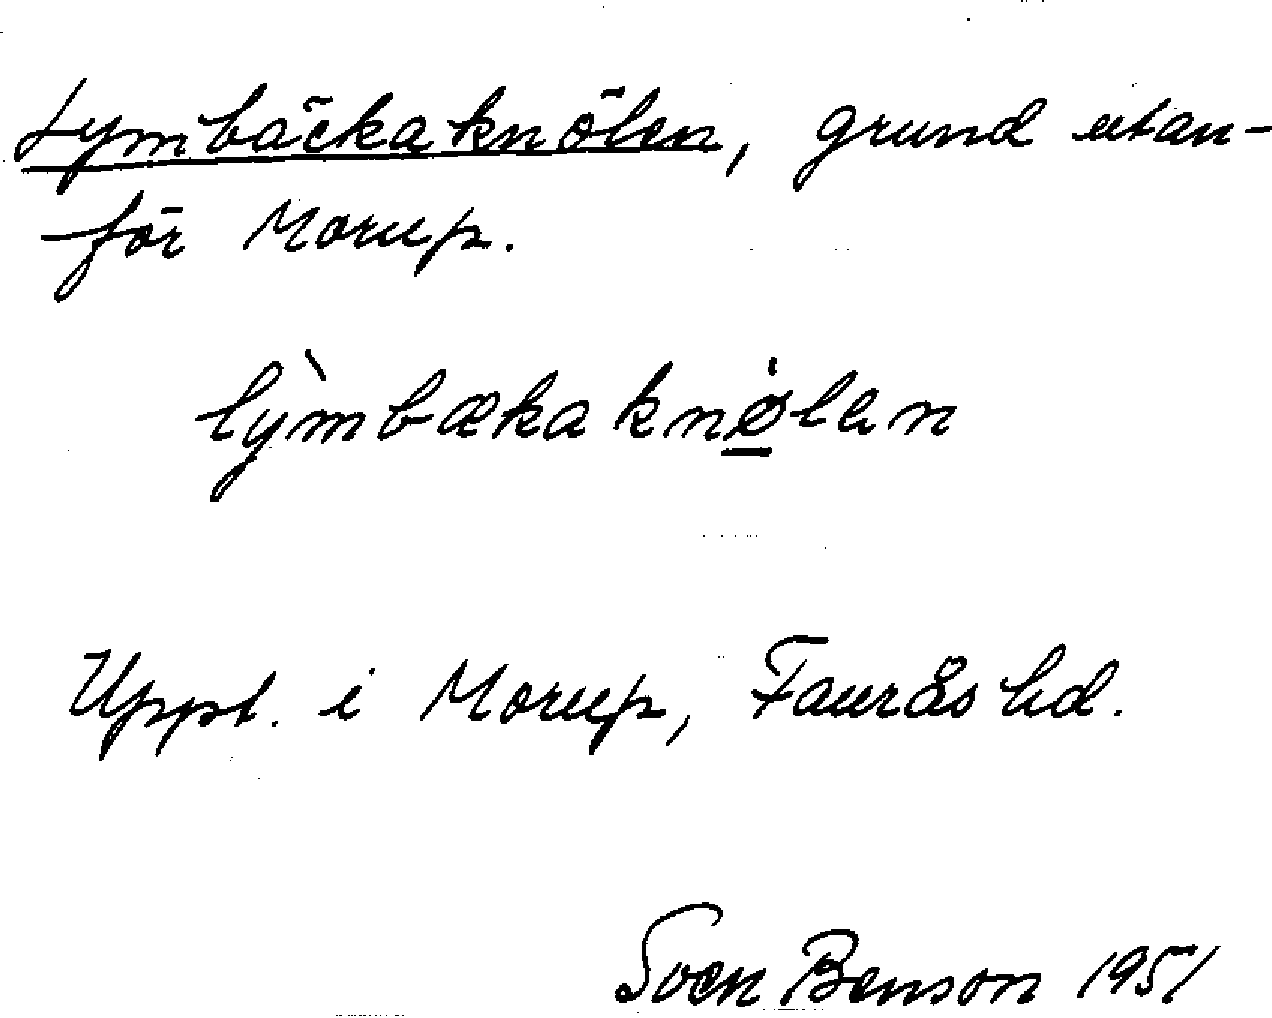 Lymbäckaknölen, grund utan-
för Morup.
lỳmbækaknǿ̲lan
Uppt. i Morup, Faurås hd.
Sven Benson 1951